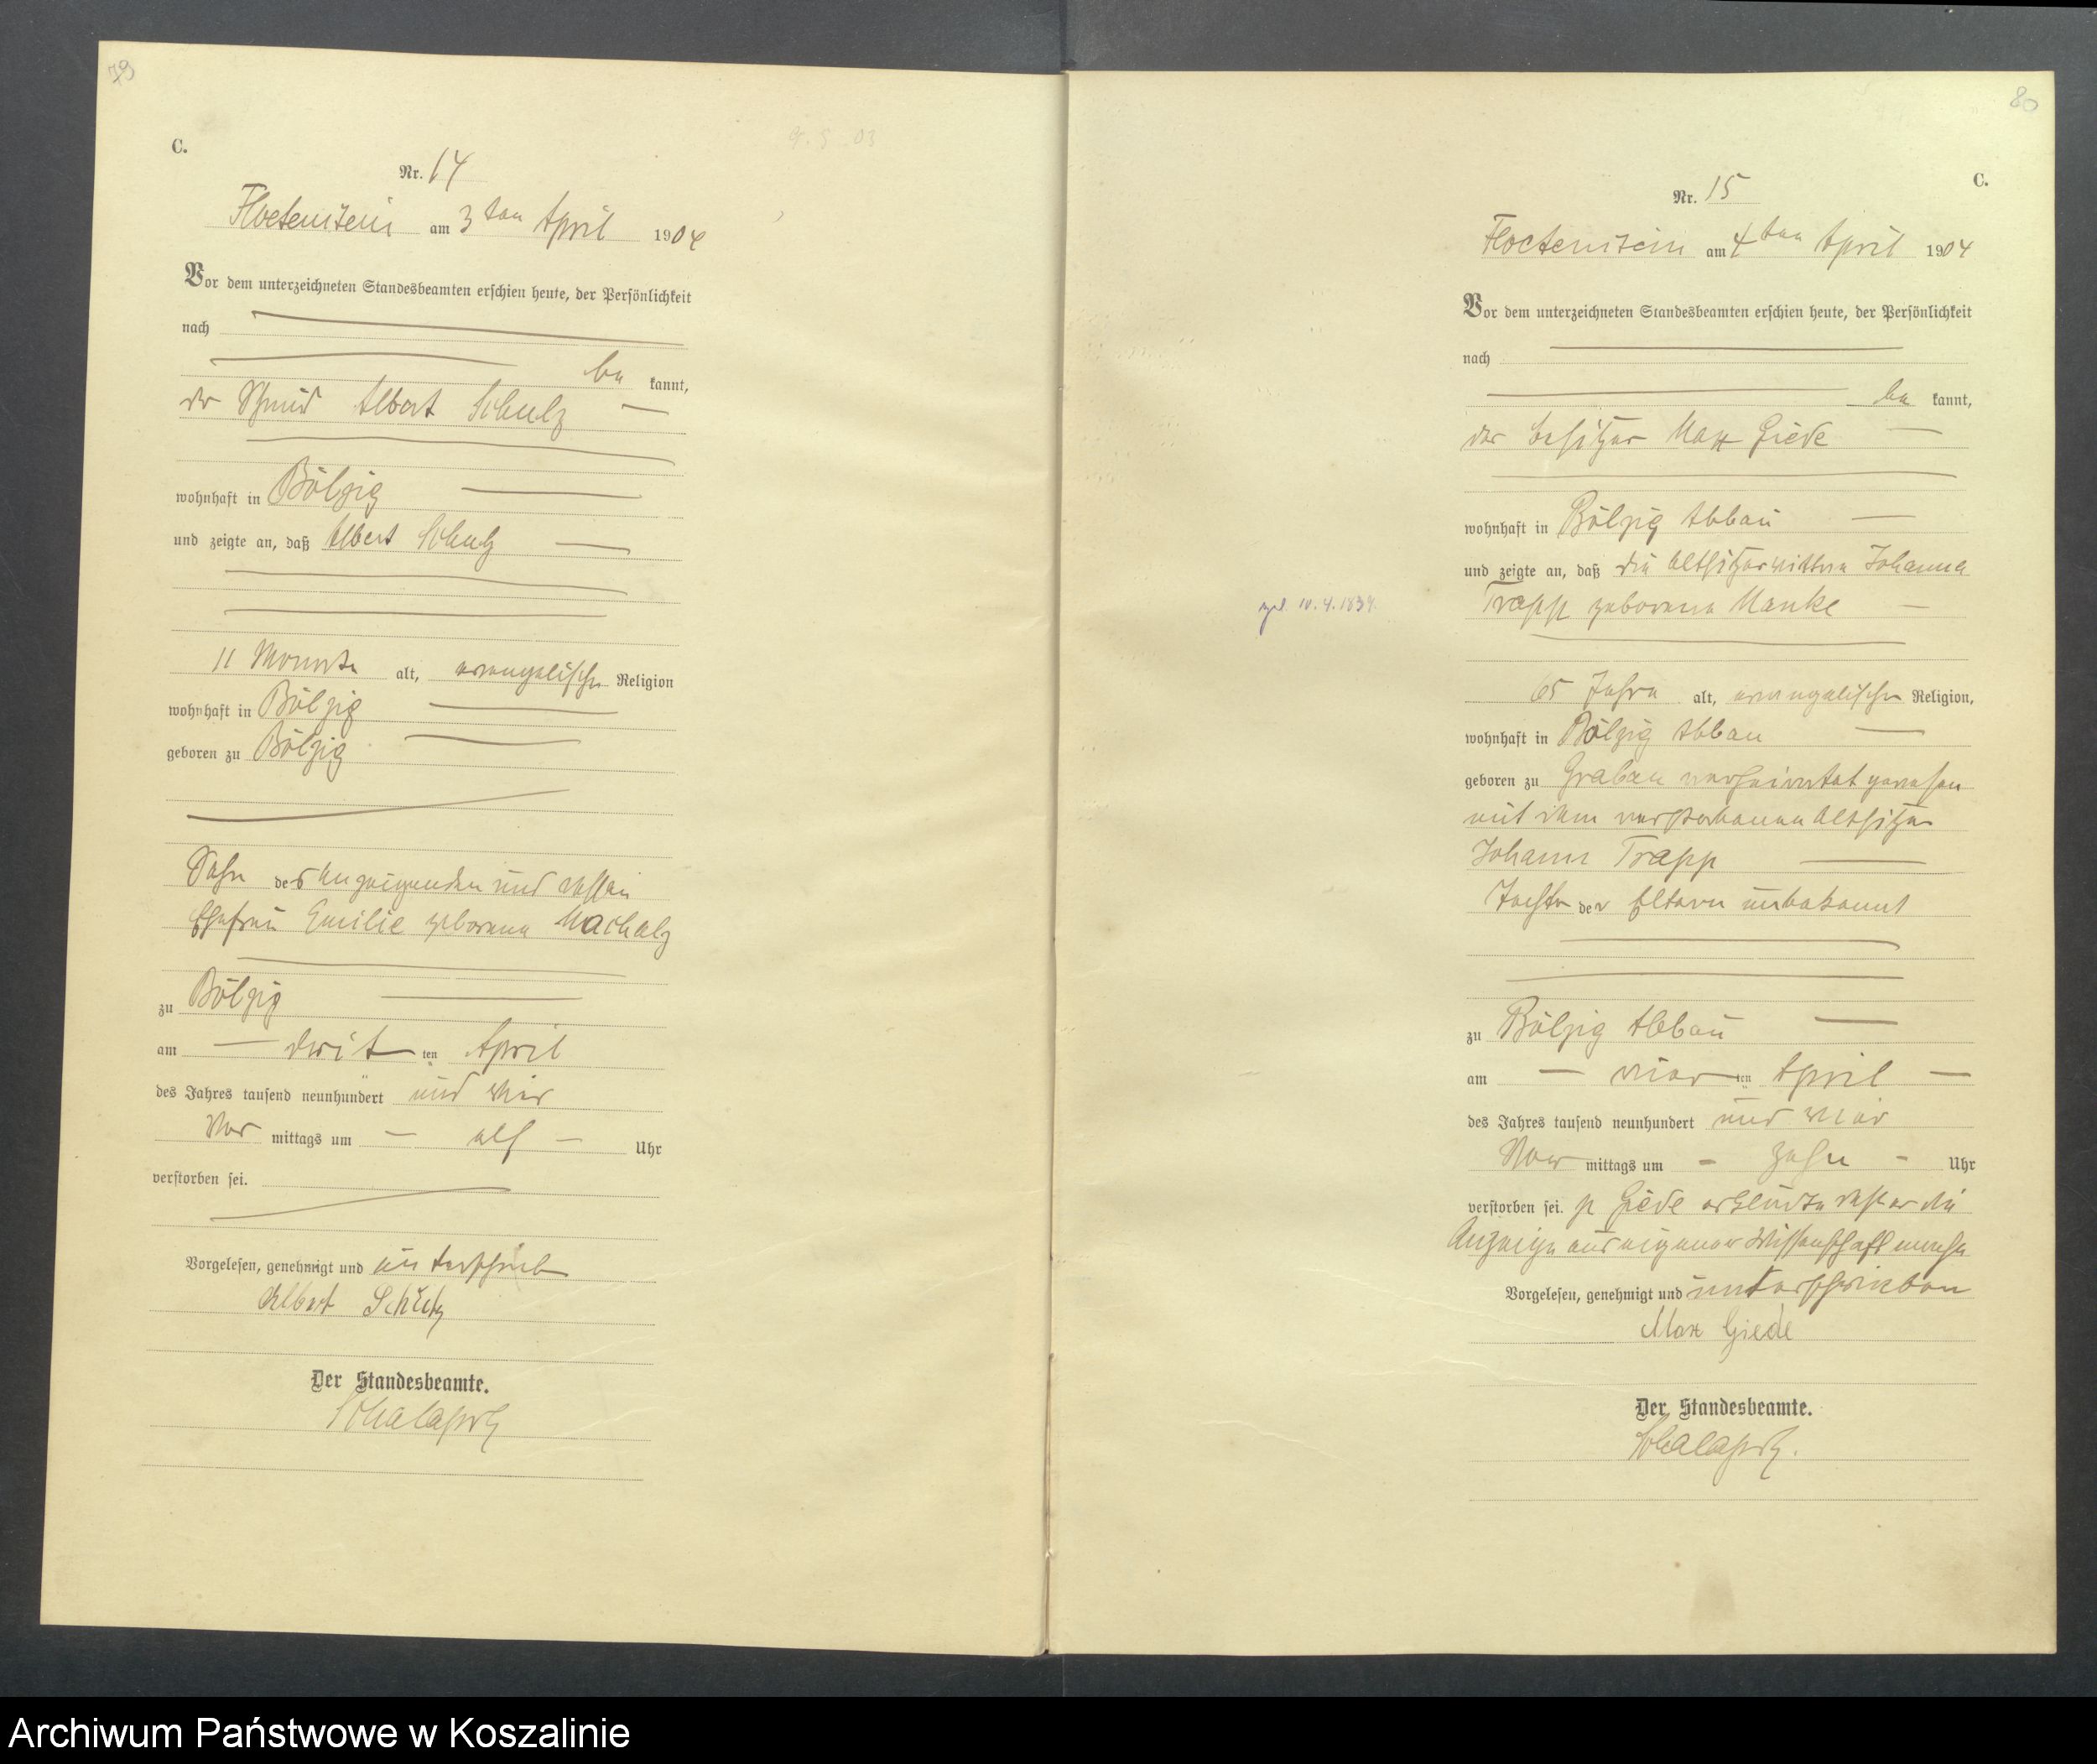 79
C.
Nr. 14
Floetenstein am 3 ten April 1904
Vor dem unterzeichneten Standesbeamten erschien heute, der Persönlichkeit
nach
be kannt,
der Schmied Albert Schulz
wohnhaft in Bölzig
und zeigte an, daß Albert Schulz
11 Monate alt, evangelischer Religion
wohnhaft in Bölzig
geboren zu Bölzig
Sohn des Anzeigenden und dessen
Ehefrau Emilie geborene
zu Bölzig
am drit ten April
des Jahres tausend neunhundert und vier
Vor mittags um elf Uhr
verstorben sei.
Vorgelesen, genehmigt und
Albert Schulz
Der Standesbeamte.
80
C.
Nr. 15
Floetenstein am 4 ten April 1904
Vor dem unterzeichneten Standesbeamten erschien heute, der Persönlichkeit
nach
be kannt,
der Besitzer Max Giede
wohnhaft in Bölzig Abbau
und zeigte an, daß die Altsitzerwittwe Johanna
Trapp geborene Manke
65 Jahre alt, evangelischer Religion,
wohnhaft in Bölzig Abbau
geboren zu Grabau verheiratet gewesen
mit dem verstorbenen Altsitzer
Johann Trapp
Tochter der Eltern unbekannt
zu Bölzig Abbau
am vier ten April
des Jahres tausend neunhundert und vier
Vor mittags um zehn Uhr
verstorben sei. p Giede erklärte daß er die
Anzeige aus eigener Wissenschaft mache
Vorgelesen, genehmigt und unterschrieben
Max Giede
Der Standesbeamte.
geb. 10.4.1839.
Archiwum Państwowe w Koszalinie